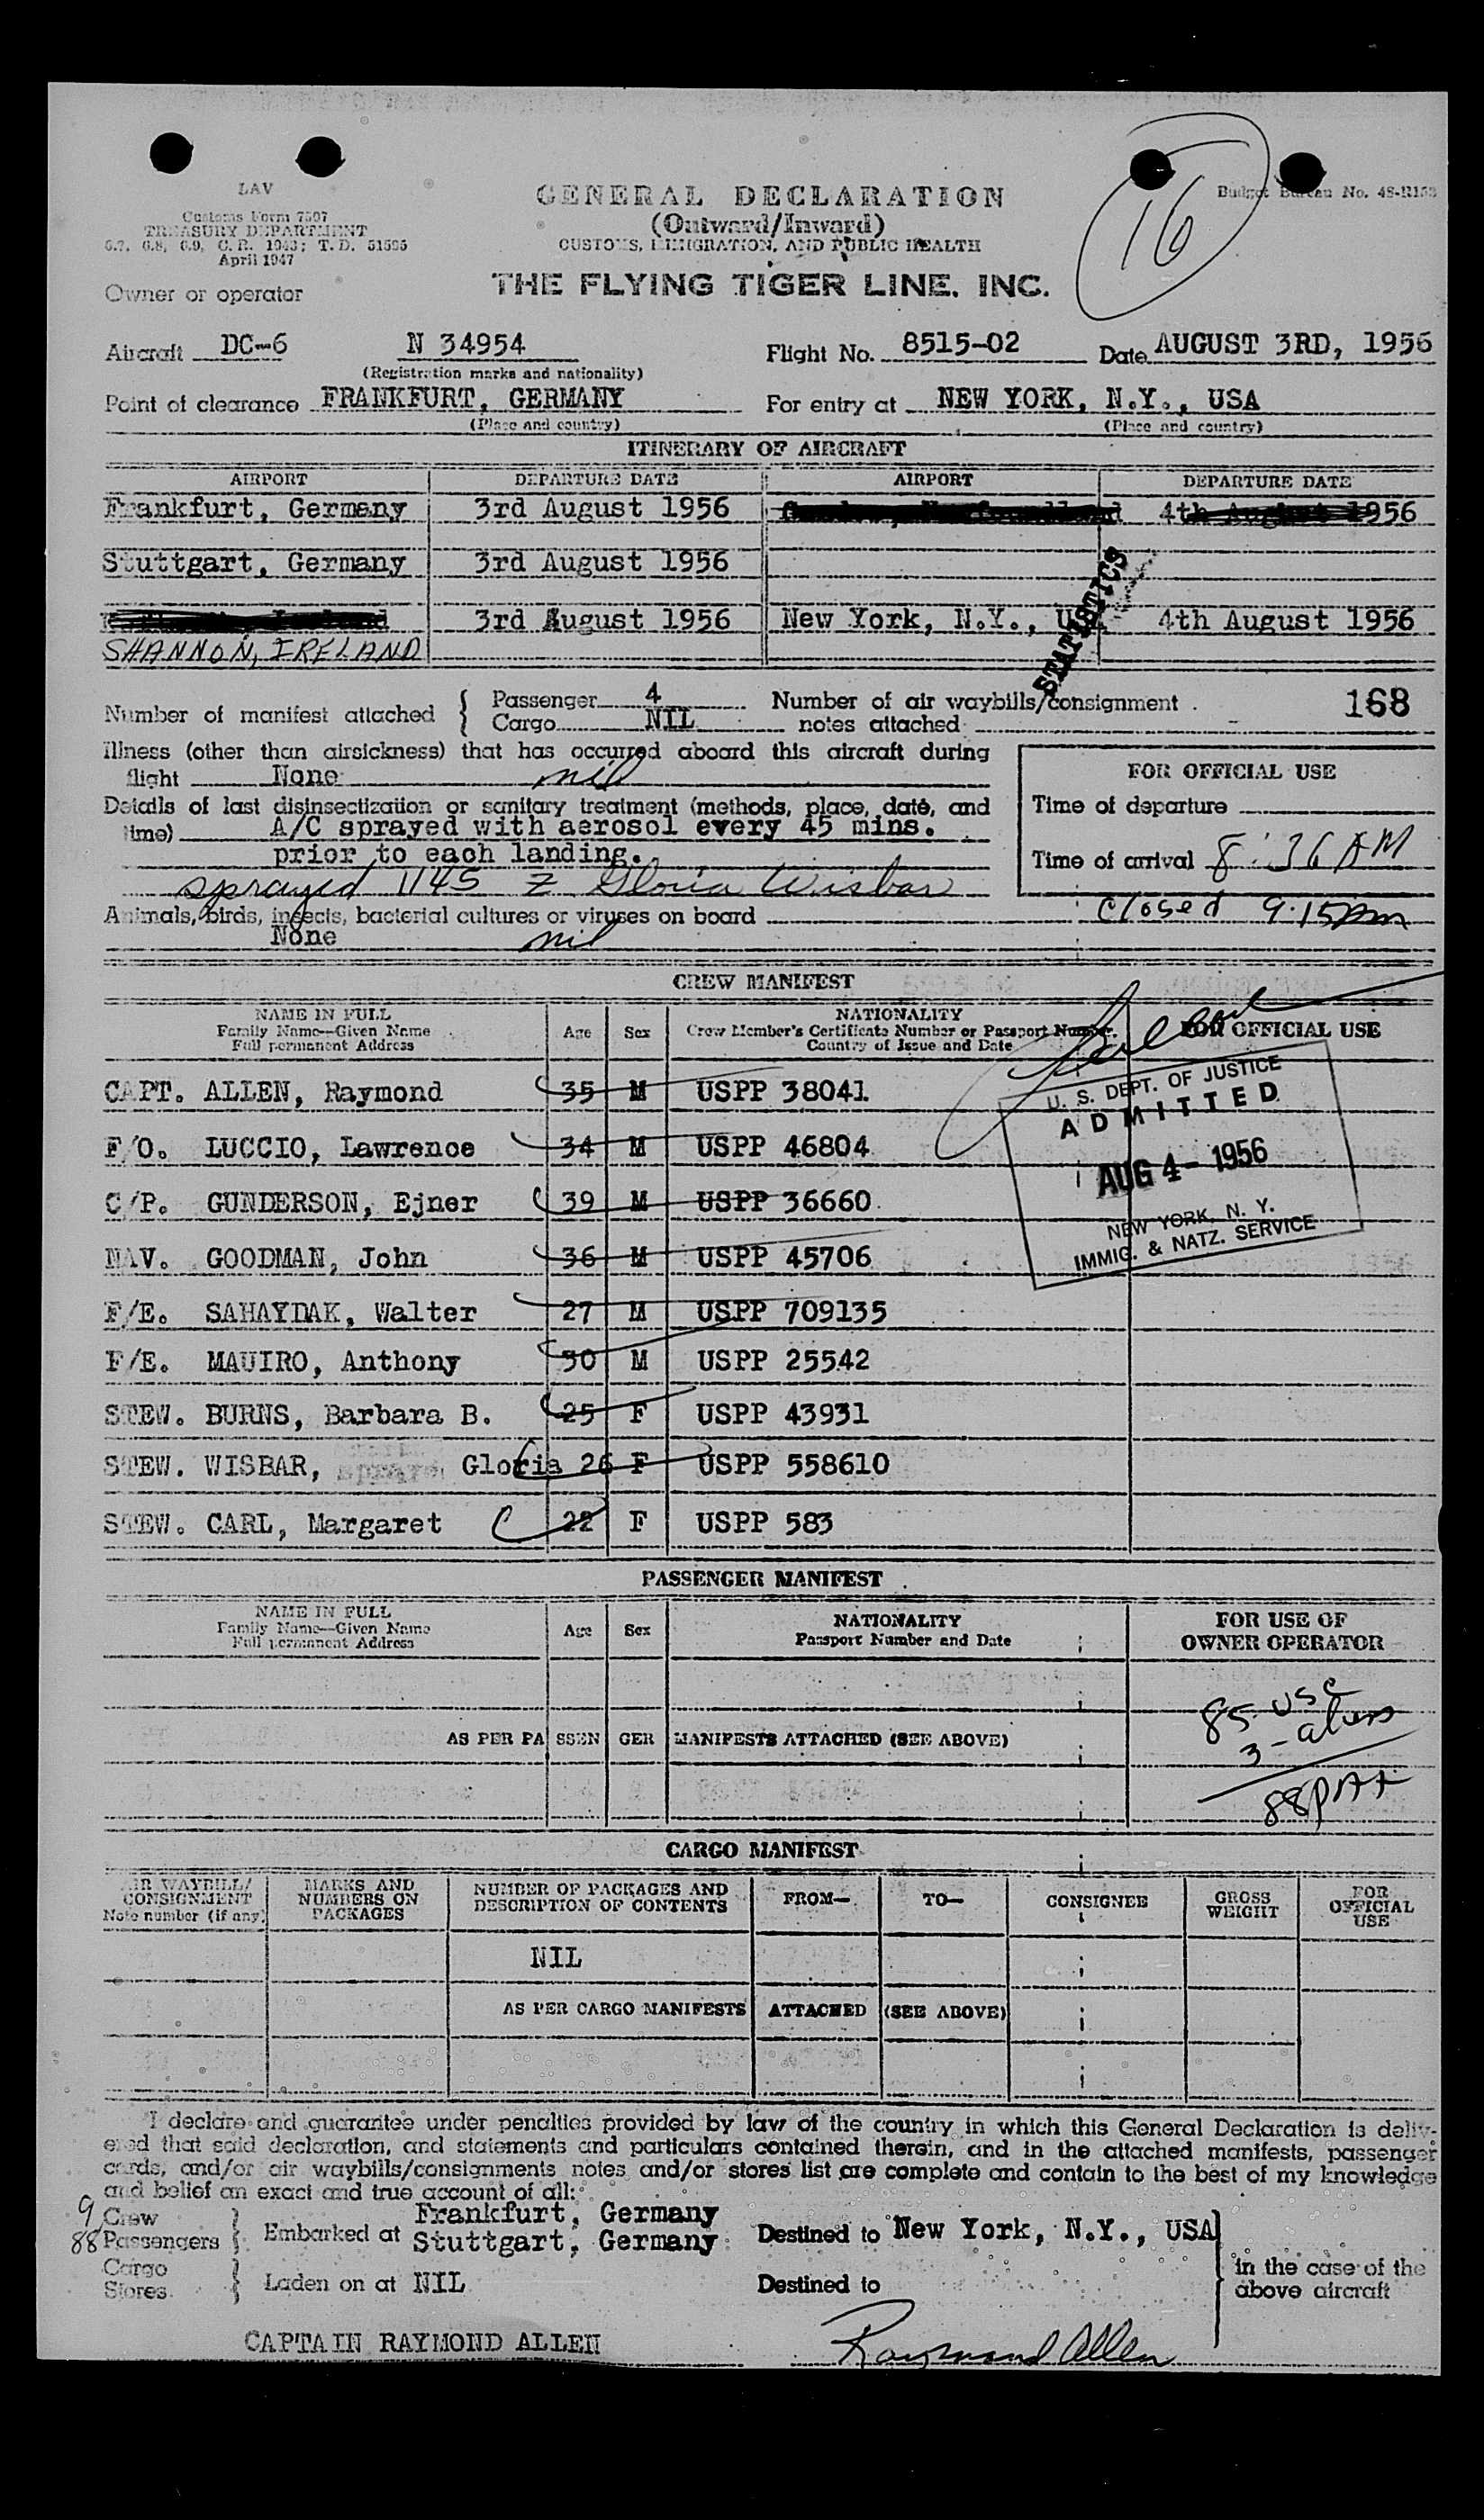 LAV
Customs Form 7507
TREASURY DEPARTMENT
6.7, 6.8, 6.9, C. R. 1943; T. D. 51595
April 1947
GENERAL DECLARATION
(Outward/Inward)
CUSTOMS, IMMIGRATION, AND PUBLIC HEALTH
THE FLYING TIGER LINE, INC.
Budget Bureau No. 48-R153
16
Owner or operator
Aircraft DC-6 N 34954 Flight No. 8515-02 Date AUGUST 3RD, 1956
(Registration marks and nationality)
Point of clearance FRANKFURT, GERMANY For entry at NEW YORK, N.Y., USA
(Place and country) (Place and country)
ITINERARY OF AIRCRAFT
AIRPORT DEPARTURE DATE AIRPORT DEPARTURE DATE
Frankfurt, Germany 3rd August 1956 4th August 1956
Stuttgart, Germany 3rd August 1956
3rd August 1956 New York, N.Y., 4th August 1956
SHANNON, IRELAND
STATISTICS
Number of manifest attached { Passenger 4 Number of air waybills/consignment 168
Cargo NIL notes attached
Illness (other than airsickness) that has occurred aboard this aircraft during
flight None nil
Details of last disinsectization or sanitary treatment (methods, place, date, and
time) A/C sprayed with aerosol every 45 mins.
prior to each landing.
sprayed 1145 Z Gloria Wisbar
Animals, birds, insects, bacterial cultures or viruses on board
None nil
FOR OFFICIAL USE
Time of departure
Time of arrival 8:36 AM
Closed 9:15
CREW MANIFEST
NAME IN FULL
Family Name—Given Name
Full permanent Address
Age Sex
NATIONALITY
Crew Member's Certificate Number or Passport Number
Country of Issue and Date
FOR OFFICIAL USE
CAPT. ALLEN, Raymond 35 M USPP 38041
F/O. LUCCIO, Lawrence 34 M USPP 46804
C/P. GUNDERSON, Ejner 39 M USPP 36660
NAV. GOODMAN, John 36 M USPP 45706
F/E. SAHAYDAK, Walter 27 M USPP 709135
F/E. MAUIRO, Anthony 30 M USPP 25542
STEW. BURNS, Barbara B. 25 F USPP 43931
STEW. WISBAR, Gloria 26 F USPP 558610
STEW. CARL, Margaret 22 F USPP 583
U. S. DEPT. OF JUSTICE
ADMITTED
AUG 4 - 1956
NEW YORK, N. Y.
IMMIG. & NATZ. SERVICE
PASSENGER MANIFEST
NAME IN FULL
Family Name—Given Name
Full permanent Address
Age Sex
NATIONALITY
Passport Number and Date
FOR USE OF
OWNER OPERATOR
85 USC
3 - aliens
88 PAX
AS PER PASSENGER MANIFESTS ATTACHED (SEE ABOVE)
CARGO MANIFEST
AIR WAYBILL/
CONSIGNMENT
Note number (if any)
MARKS AND
NUMBERS ON
PACKAGES
NUMBER OF PACKAGES AND
DESCRIPTION OF CONTENTS
FROM—
TO—
CONSIGNEE
GROSS
WEIGHT
FOR
OFFICIAL
USE
NIL
AS PER CARGO MANIFESTS ATTACHED (SEE ABOVE)
I declare and guarantee under penalties provided by law of the country in which this General Declaration is deliv-
ered that said declaration, and statements and particulars contained therein, and in the attached manifests, passenger
cards, and/or air waybills/consignments notes and/or stores list are complete and contain to the best of my knowledge
and belief an exact and true account of all:
9 Crew } Embarked at Frankfurt, Germany Destined to New York, N.Y., USA
88 Passengers Stuttgart, Germany
Cargo } Laden on at NIL Destined to
Stores
in the case of the
above aircraft
CAPTAIN RAYMOND ALLEN Raymond Allen